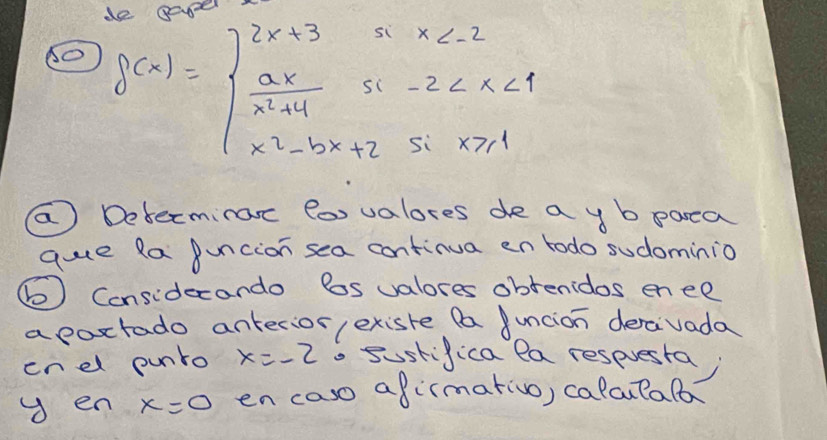 de papel
10) f(x) = { 2x+3 si x<-2
ax/(x²+4) si -2<x<1
x²-bx+2 si x⩾1
a) Determinar los valores de a y b para
que la función sea continua en todo su dominio
b) Considerando los valores obtenidos en el
apartado anterior, existe la función derivada
en el punto x=-2. Justifica la respuesta,
y en x=0 en caso afirmativo, calcúlala